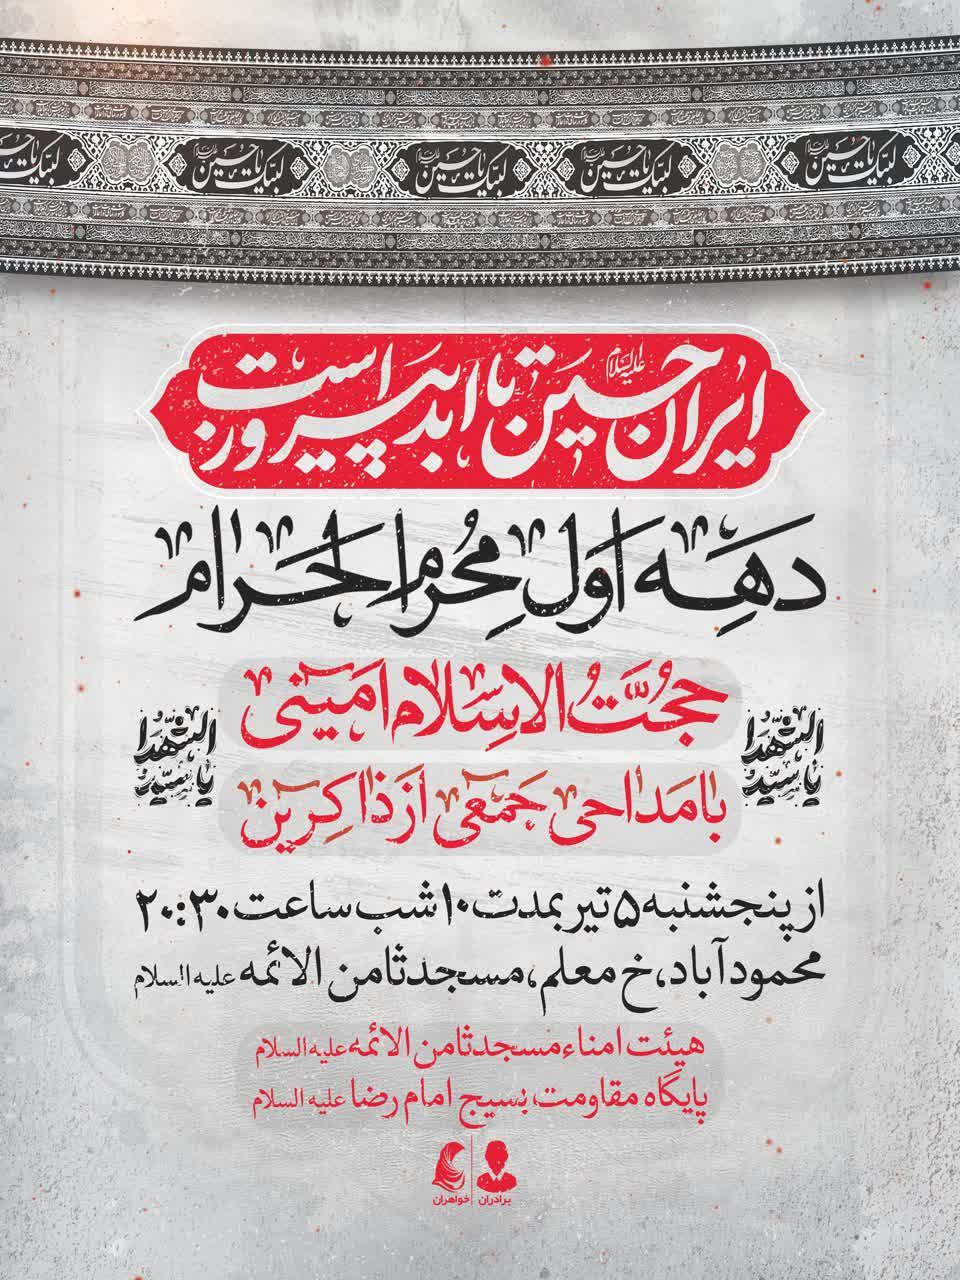 لبیک یا حسین لبیک یا حسین لبیک یا حسین لبیک یا حسین لبیک یا حسین
ایران حسین علیه السلام تا ابد پیروز است
دهه اول محرم الحرام
حجت الاسلام امینی
یا سید الشهدا
یا سید الشهدا
با مداحی جمعی از ذاکرین
از پنجشنبه ۵ تیر بمدت ۱۰ شب ساعت ۲۰:۳۰
محمودآباد، خ معلم، مسجد ثامن الائمه علیه السلام
هیئت امناء مسجد ثامن الائمه علیه السلام
پایگاه مقاومت بسیج امام رضا علیه السلام
برادران | خواهران